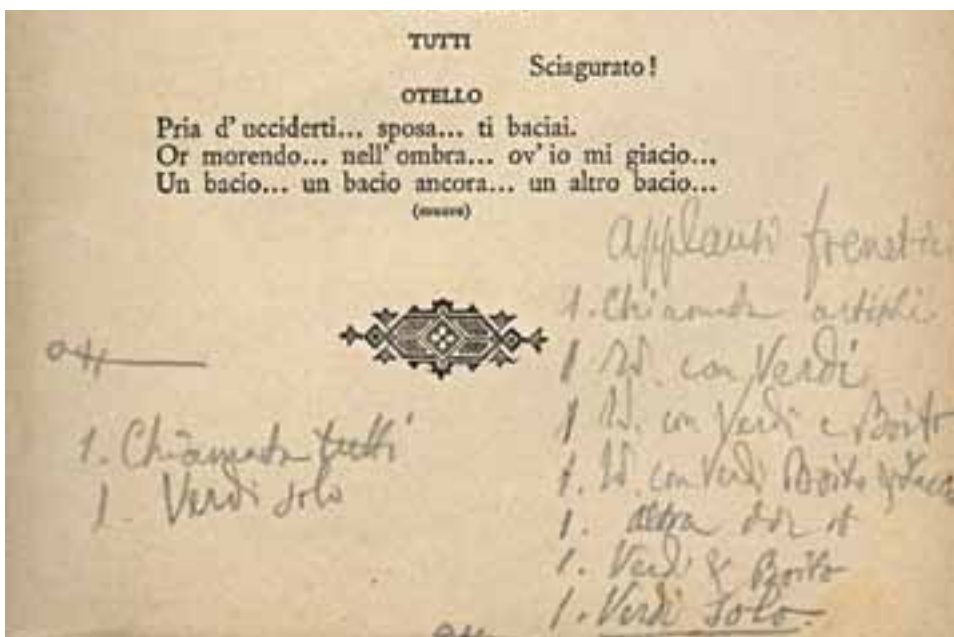 TUTTI
Sciagurato!
OTELLO
Pria d'ucciderti... sposa... ti baciai.
Or morendo... nell'ombra... ov'io mi giacio...
Un bacio... un bacio ancora... un altro bacio...
(muore)
Applausi frenetici
1. Chiamata artisti
1 Id. con Verdi
1 Id. con Verdi e Boito
1. Id. con Verdi Boito
1. altra
1. Verdi & Boito
1. Verdi solo.
1. Chiamata tutti
1. Verdi solo